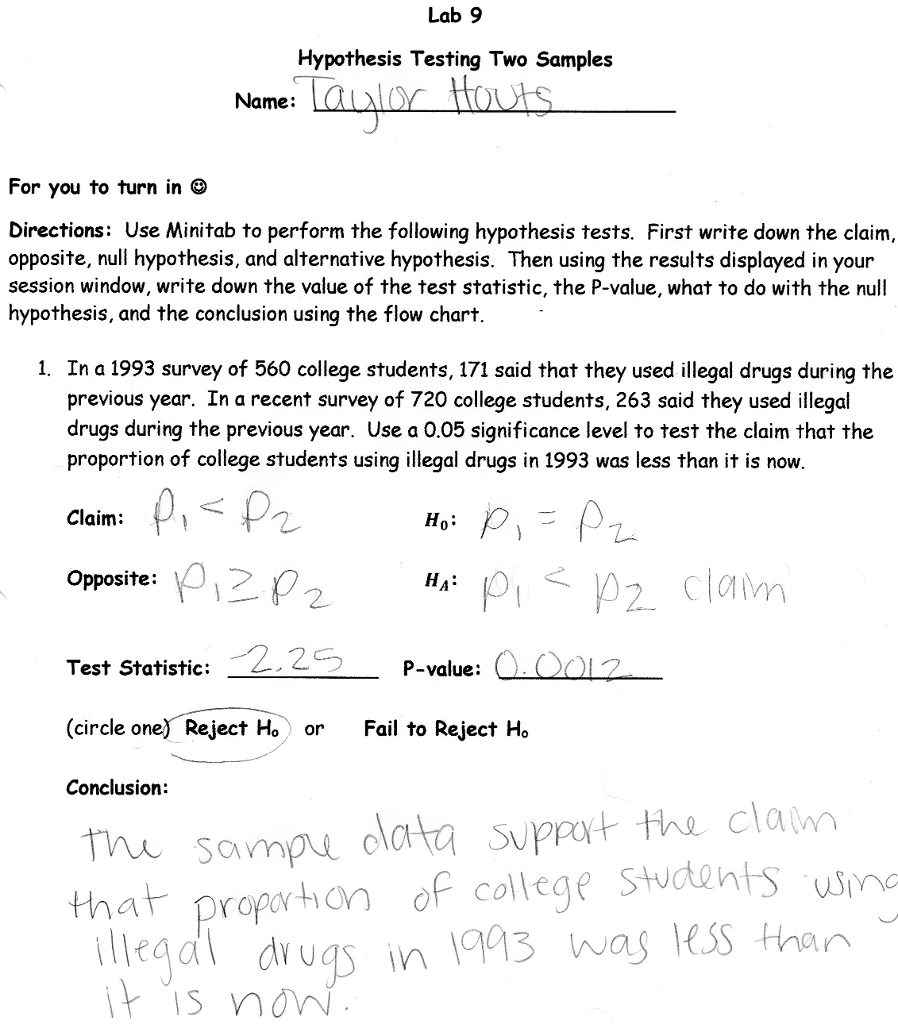 Lab 9
Hypothesis Testing Two Samples
Name: Taylor Houts
For you to turn in ☺
Directions: Use Minitab to perform the following hypothesis tests. First write down the claim,
opposite, null hypothesis, and alternative hypothesis. Then using the results displayed in your
session window, write down the value of the test statistic, the P-value, what to do with the null
hypothesis, and the conclusion using the flow chart.
1. In a 1993 survey of 560 college students, 171 said that they used illegal drugs during the
previous year. In a recent survey of 720 college students, 263 said they used illegal
drugs during the previous year. Use a 0.05 significance level to test the claim that the
proportion of college students using illegal drugs in 1993 was less than it is now.
Claim: p₁ < p₂ H₀: p₁ = p₂
Opposite: p₁ ≥ p₂ H_A: p₁ < p₂ claim
Test Statistic: -2.25 P-value: 0.0012
(circle one) Reject H₀ or Fail to Reject H₀
Conclusion:
The sample data support the claim
that proportion of college students using
illegal drugs in 1993 was less than
it is now.